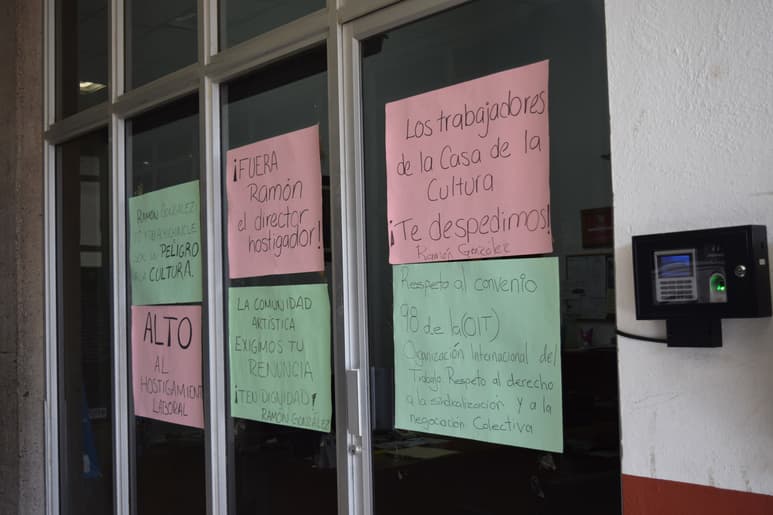 RAMÓN GONZÁLEZ
SON UN PELIGRO
A LA
CULTURA.
ALTO
AL
HOSTIGAMIENTO
LABORAL
¡FUERA
Ramón
el director
hostigador!
LA COMUNIDAD
ARTÍSTICA
EXIGIMOS TU
RENUNCIA
¡TEN DIGNIDAD!
RAMÓN GONZÁLEZ
Los trabajadores
de la Casa de la
Cultura
¡Te despedimos!
Ramón González
Respeto al convenio
98 de la (OIT)
Organización Internacional del
Trabajo. Respeto al derecho
a la sindicalización y a la
negociación Colectiva